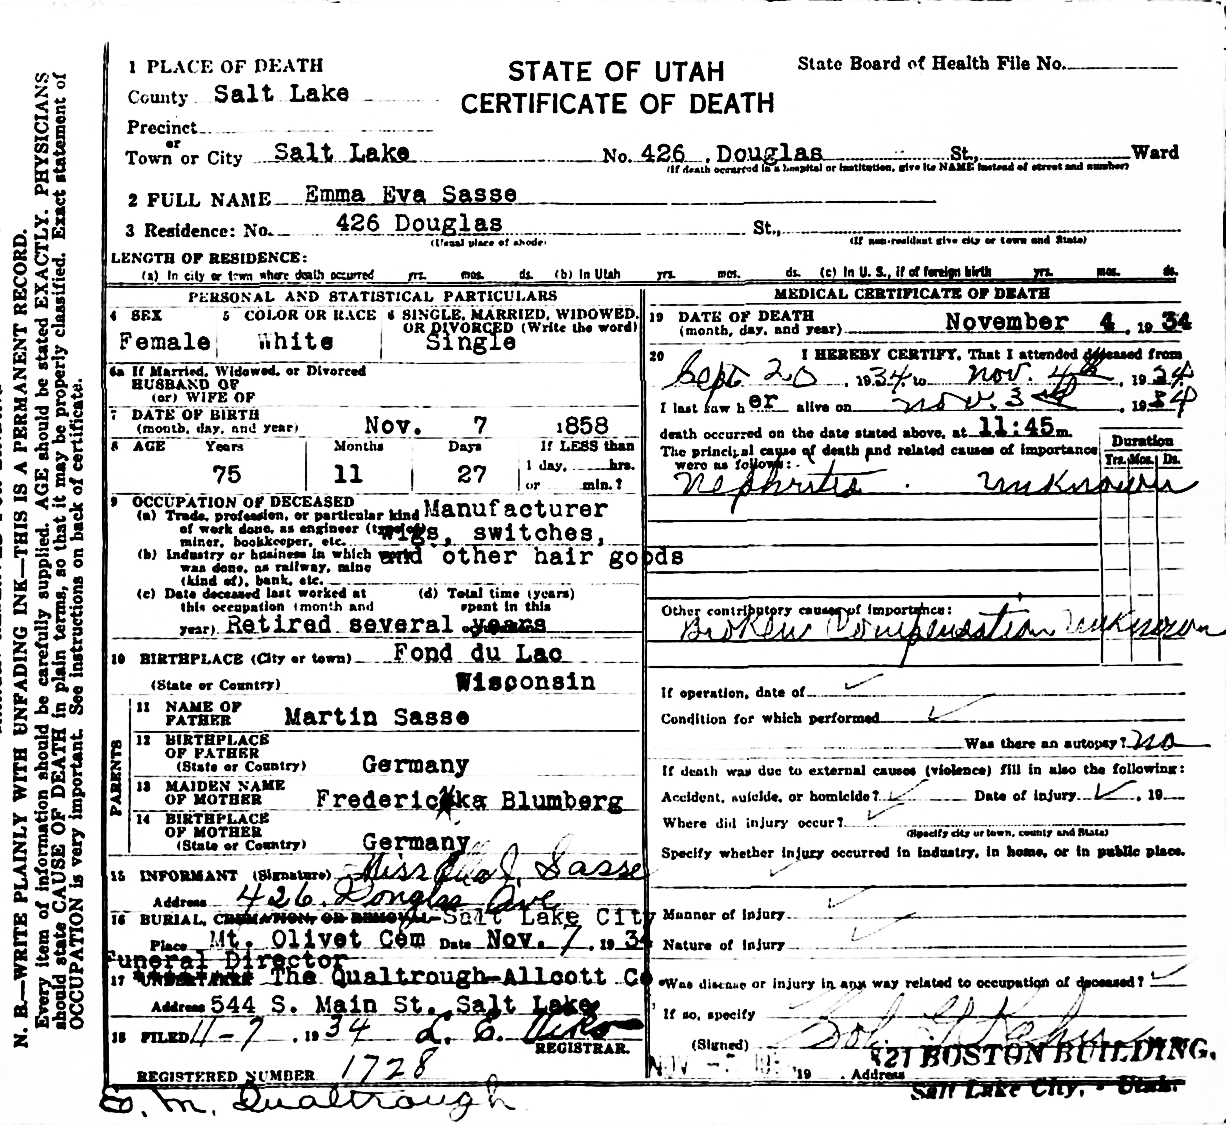 N. B.—WRITE PLAINLY WITH UNFADING INK—THIS IS A PERMANENT RECORD.
Every item of information should be carefully supplied. AGE should be stated EXACTLY. PHYSICIANS
should state CAUSE OF DEATH in plain terms, so that it may be properly classified. Exact statement of
OCCUPATION is very important. See instructions on back of certificate.
STATE OF UTAH
CERTIFICATE OF DEATH
State Board of Health File No.
1 PLACE OF DEATH
County Salt Lake
Precinct
or
Town or City Salt Lake No. 426 Douglas St., Ward
(If death occurred in a hospital or institution, give its NAME instead of street and number)
2 FULL NAME Emma Eva Sasse
3 Residence: No. 426 Douglas St.,
(Usual place of abode) (If non-resident give city or town and State)
LENGTH OF RESIDENCE:
(a) In city or town where death occurred yrs. mos. ds. (b) In Utah yrs. mos. ds. (c) In U. S., if of foreign birth yrs. mos. ds.
PERSONAL AND STATISTICAL PARTICULARS
4 SEX 5 COLOR OR RACE 6 SINGLE, MARRIED, WIDOWED, OR DIVORCED (Write the word)
Female White Single
6a If Married, Widowed, or Divorced
HUSBAND OF
(or) WIFE OF
7 DATE OF BIRTH
(month, day, and year) Nov. 7 1858
8 AGE Years Months Days If LESS than
75 11 27 1 day, hrs.
or min.?
9 OCCUPATION OF DECEASED
(a) Trade, profession, or particular kind Manufacturer
of work done, as engineer (type of)
miner, bookkeeper, etc. wigs, switches,
(b) Industry or business in which and other hair goods
was done, as railway, mine
(kind of), bank, etc.
(c) Date deceased last worked at (d) Total time (years)
this occupation (month and spent in this
year) Retired several years
10 BIRTHPLACE (City or town) Fond du Lac
(State or Country) Wisconsin
PARENTS
11 NAME OF
FATHER Martin Sasse
12 BIRTHPLACE
OF FATHER
(State or Country) Germany
13 MAIDEN NAME
OF MOTHER Fredericka Blumberg
14 BIRTHPLACE
OF MOTHER
(State or Country) Germany
15 INFORMANT (Signature) Miss Ella J. Sasse
Address 426 Douglas Ave
16 BURIAL, CREMATION OR REMOVAL Salt Lake City
Place Mt. Olivet Cem Date Nov. 7, 1934
Funeral Director
17 UNDERTAKER The Qualtrough-Allcott Co
Address 544 S. Main St. Salt Lake
18 FILED 11-7, 1934 L. E.
REGISTRAR.
REGISTERED NUMBER 1728
E. M. Qualtrough
MEDICAL CERTIFICATE OF DEATH
19 DATE OF DEATH
(month, day, and year) November 4, 1934
20 I HEREBY CERTIFY, That I attended deceased from
Sept. 20, 1934 to Nov. 4th, 1934
I last saw her alive on Nov. 3rd, 1934
death occurred on the date stated above, at 11:45 m.
The principal cause of death and related causes of importance
were as follows:
Duration
Yrs. Mos. Ds.
Nephritis unknown
Other contributory causes of importance:
Broken Compensation unknown
If operation, date of
Condition for which performed
Was there an autopsy? no
If death was due to external causes (violence) fill in also the following:
Accident, suicide, or homicide? Date of injury , 19
Where did injury occur?
(Specify city or town, county and State)
Specify whether injury occurred in industry, in home, or in public place.
Manner of injury
Nature of injury
Was disease or injury in any way related to occupation of deceased?
If so, specify
(Signed)
19 . Address 821 BOSTON BUILDING,
Salt Lake City, - Utah.